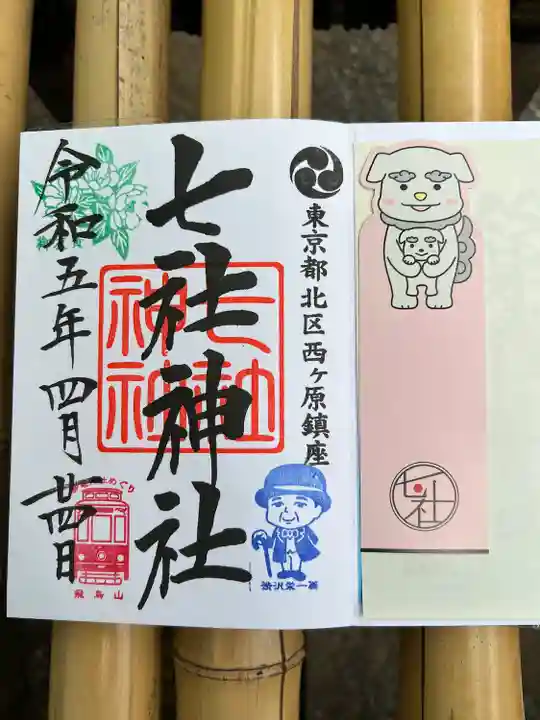 東京都北区西ヶ原鎮座
七社神社
七社神社
令和五年四月廿四日
めぐり
飛鳥山
渋沢栄一翁
七社